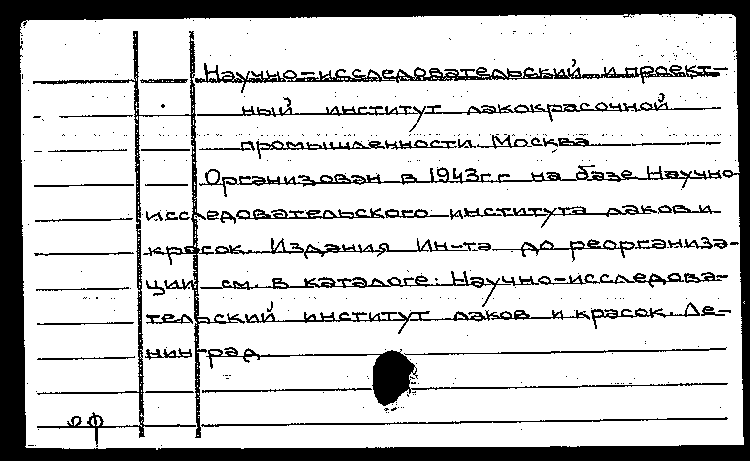 Научно-исследовательский и проект-
ный институт лакокрасочной
промышленности. Москва
Организован в 1943г. на базе Научно-
исследовательского института лаков и
красок. Издания Ин-та до реорганиза-
ции см. в каталоге: Научно-исследова-
тельский институт лаков и красок. Ле-
нинград